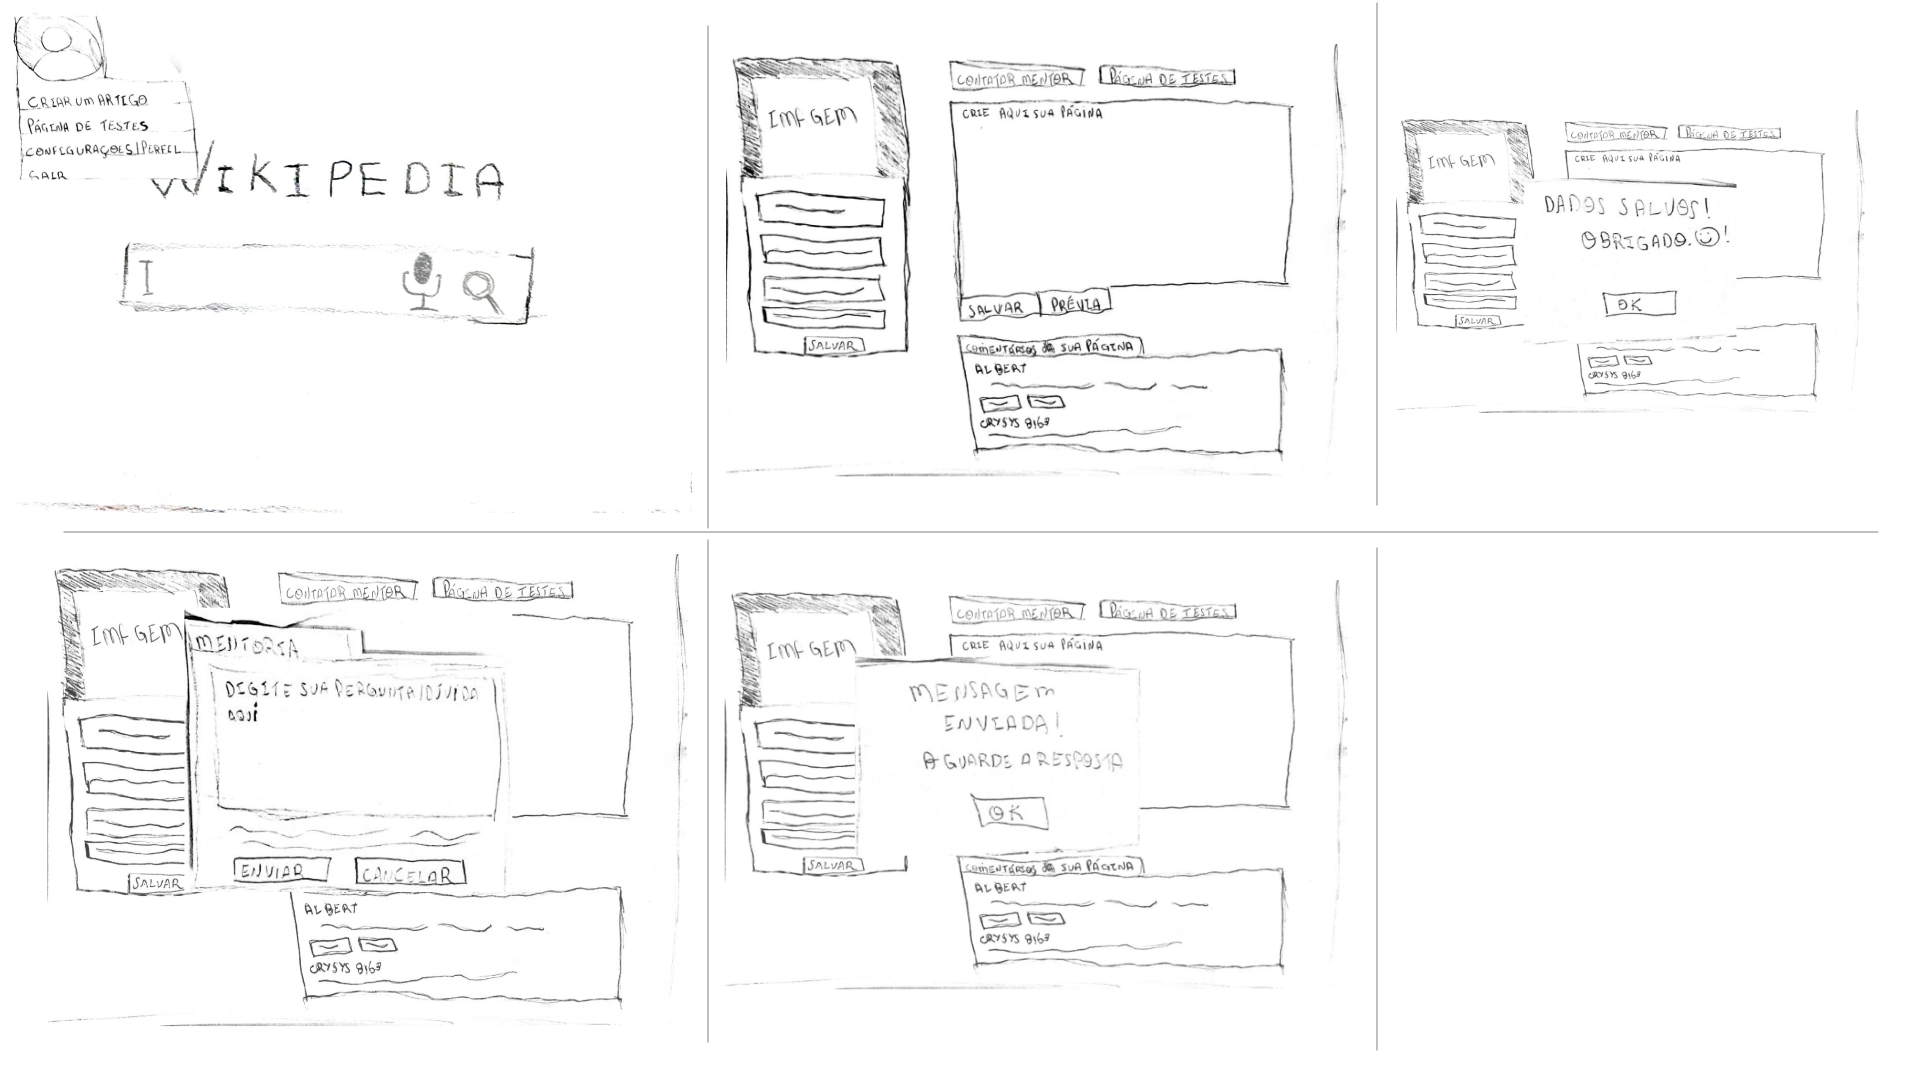 CRIAR UM ARTIGO
PÁGINA DE TESTES
CONFIGURAÇOES/PERFIL
SAIR
WIKIPEDIA
IMAGEM
SALVAR
CONTATAR MENTOR
PÁGINA DE TESTES
CRIE AQUI SUA PÁGINA
SALVAR
PRÉVIA
COMENTÁRIOS de SUA PÁGINA
ALBERT
CRYSYS 8163
IMAGEM
SALVAR
CONTATAR MENTOR
PÁGINA DE TESTES
CRIE AQUI SUA PÁGINA
DADOS SALVOS!
OBRIGADO. ☺!
OK
CRYSYS 8163
IMAGEM
SALVAR
CONTATAR MENTOR
PÁGINA DE TESTES
MENTORIA
DIGITE SUA PERGUNTA/DÚVIDA
AQUI
ENVIAR
CANCELAR
ALBERT
CRYSYS 8163
IMAGEM
SALVAR
CONTATAR MENTOR
PÁGINA DE TESTES
CRIE AQUI SUA PÁGINA
MENSAGEM
ENVIADA!
AGUARDE A RESPOSTA
OK
COMENTÁRIOS de SUA PÁGINA
ALBERT
CRYSYS 8163